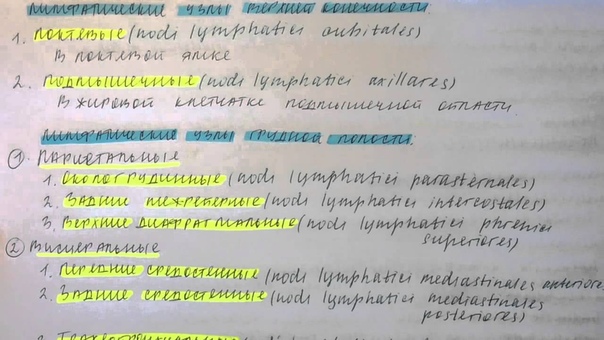 Лимфатические узлы верхней конечности.
1. Локтевые (nodi lymphatici cubitales)
В локтевой ямке
2. Подмышечные (nodi lymphatici axillares)
В жировой клетчатке подмышечной области.
Лимфатические узлы грудной полости.
① Париетальные
1. Окологрудинные (nodi lymphatici parasternales)
2. Задние межреберные (nodi lymphatici intercostales)
3. Верхние диафрагмальные (nodi lymphatici phrenici
superiores)
② Висцеральные
1. Передние средостенные (nodi lymphatici mediastinales anteriores
2. Задние средостенные (nodi lymphatici mediastinales
posteriores)